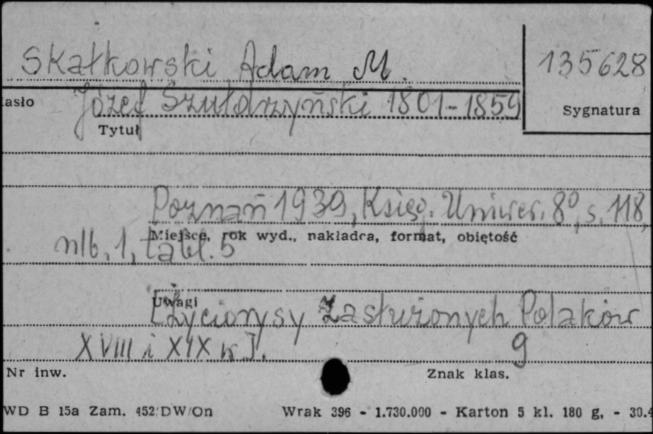 Skałkowski Adam M.
135628
asło
Józef Szułdrzyński 1801-1859
Sygnatura
Tytuł
Poznań 1939, Księg. Uniwer. 8º, s. 118,
Miejsce, rok wyd., nakładca, format, objętość
nlb. 1, tabl. 5
Uwagi
[Życiorysy zasłużonych Polaków
XVIII i XIX w.].
9
Nr inw.
Znak klas.
WD B 15a Zam. 452/DW/On Wrak 396 - 1.730.000 - Karton 5 kl. 180 g. - 30.4